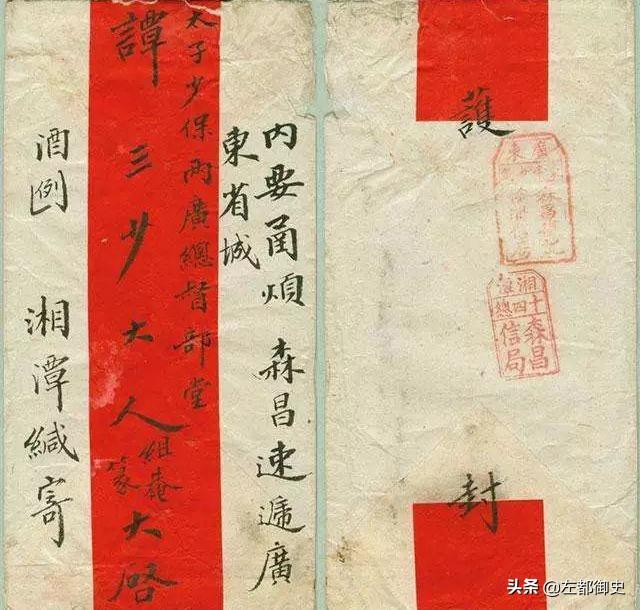 内要函煩 森昌速遞廣
東省城
太子少保兩廣總督部堂
譚三少大人組菴篆大啓
酒例 湘潭緘寄
護
廣東
湘潭
十四總
森昌
信局
封
头条 @左都御史